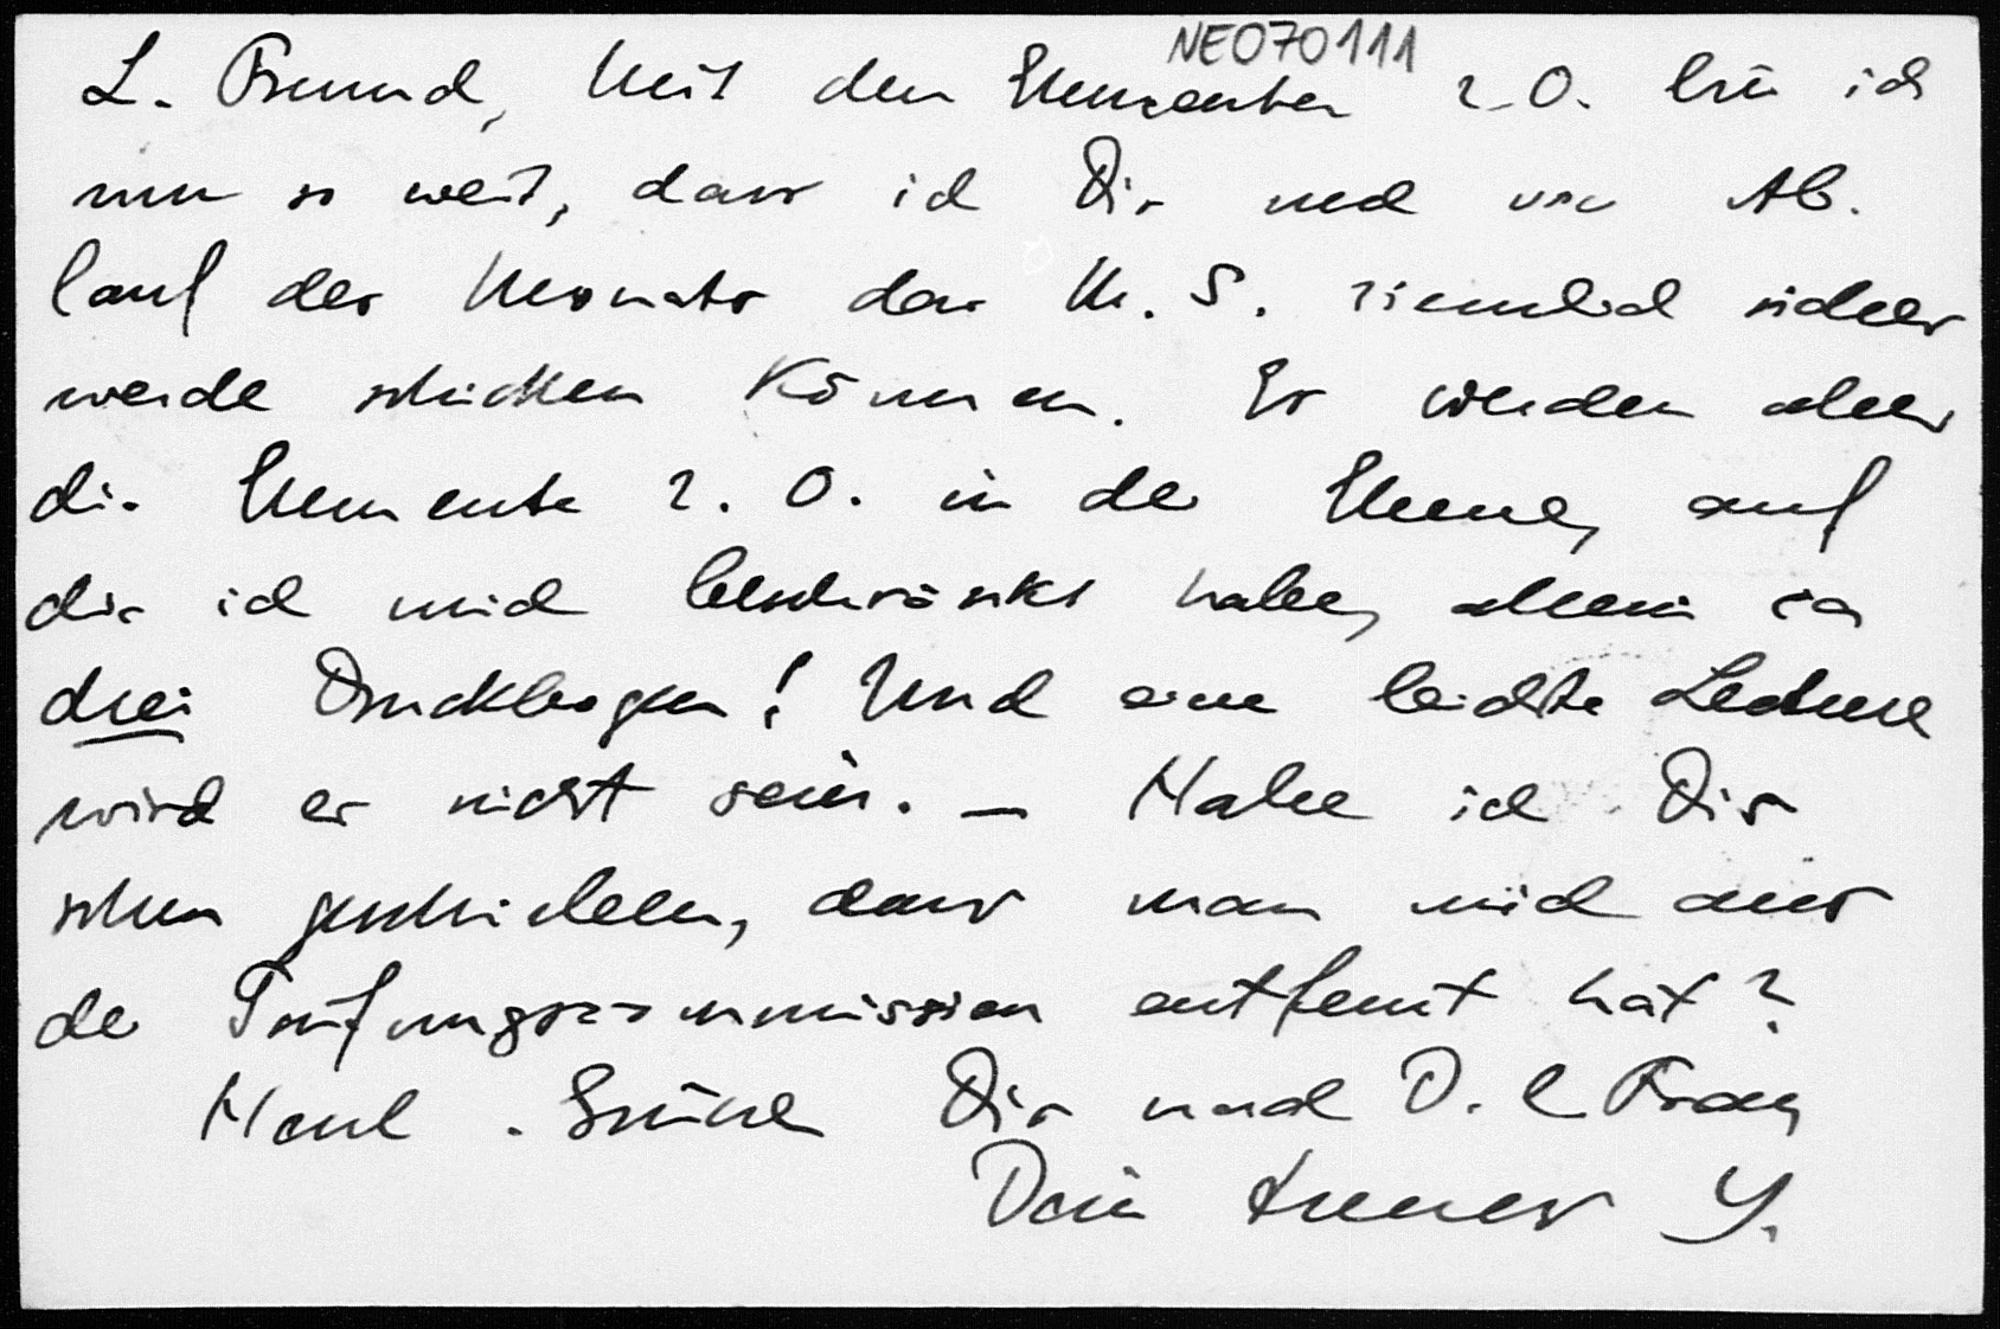 NEO70111
L. Freund, Mit den Elementen z. O. bin ich
nun so weit, dass ich Dir noch vor Ab-
lauf des Monats das M. S. ziemlich sicher
werde schicken können. Es werden aber
die Elemente z. O. in der Ebene, auf
die ich mich beschränkt habe, allein ca
drei Druckbogen! Und eine leichte Lecture
wird es nicht sein. – Habe ich Dir
schon geschrieben, dass man mich aus
der Prüfungscommission entfernt hat?
Grüsse Dir und D. l. Frau
Dein treuer